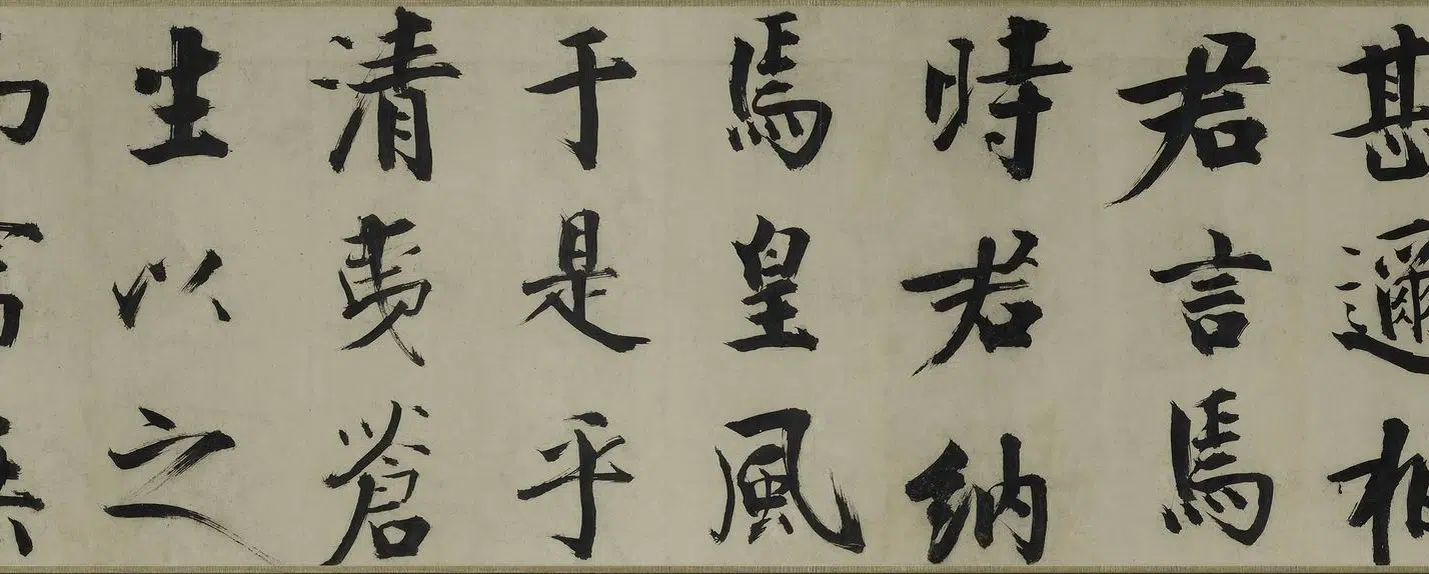 甚邇相
君言焉
時君納
焉皇風
于是乎
清夷蒼
生以之